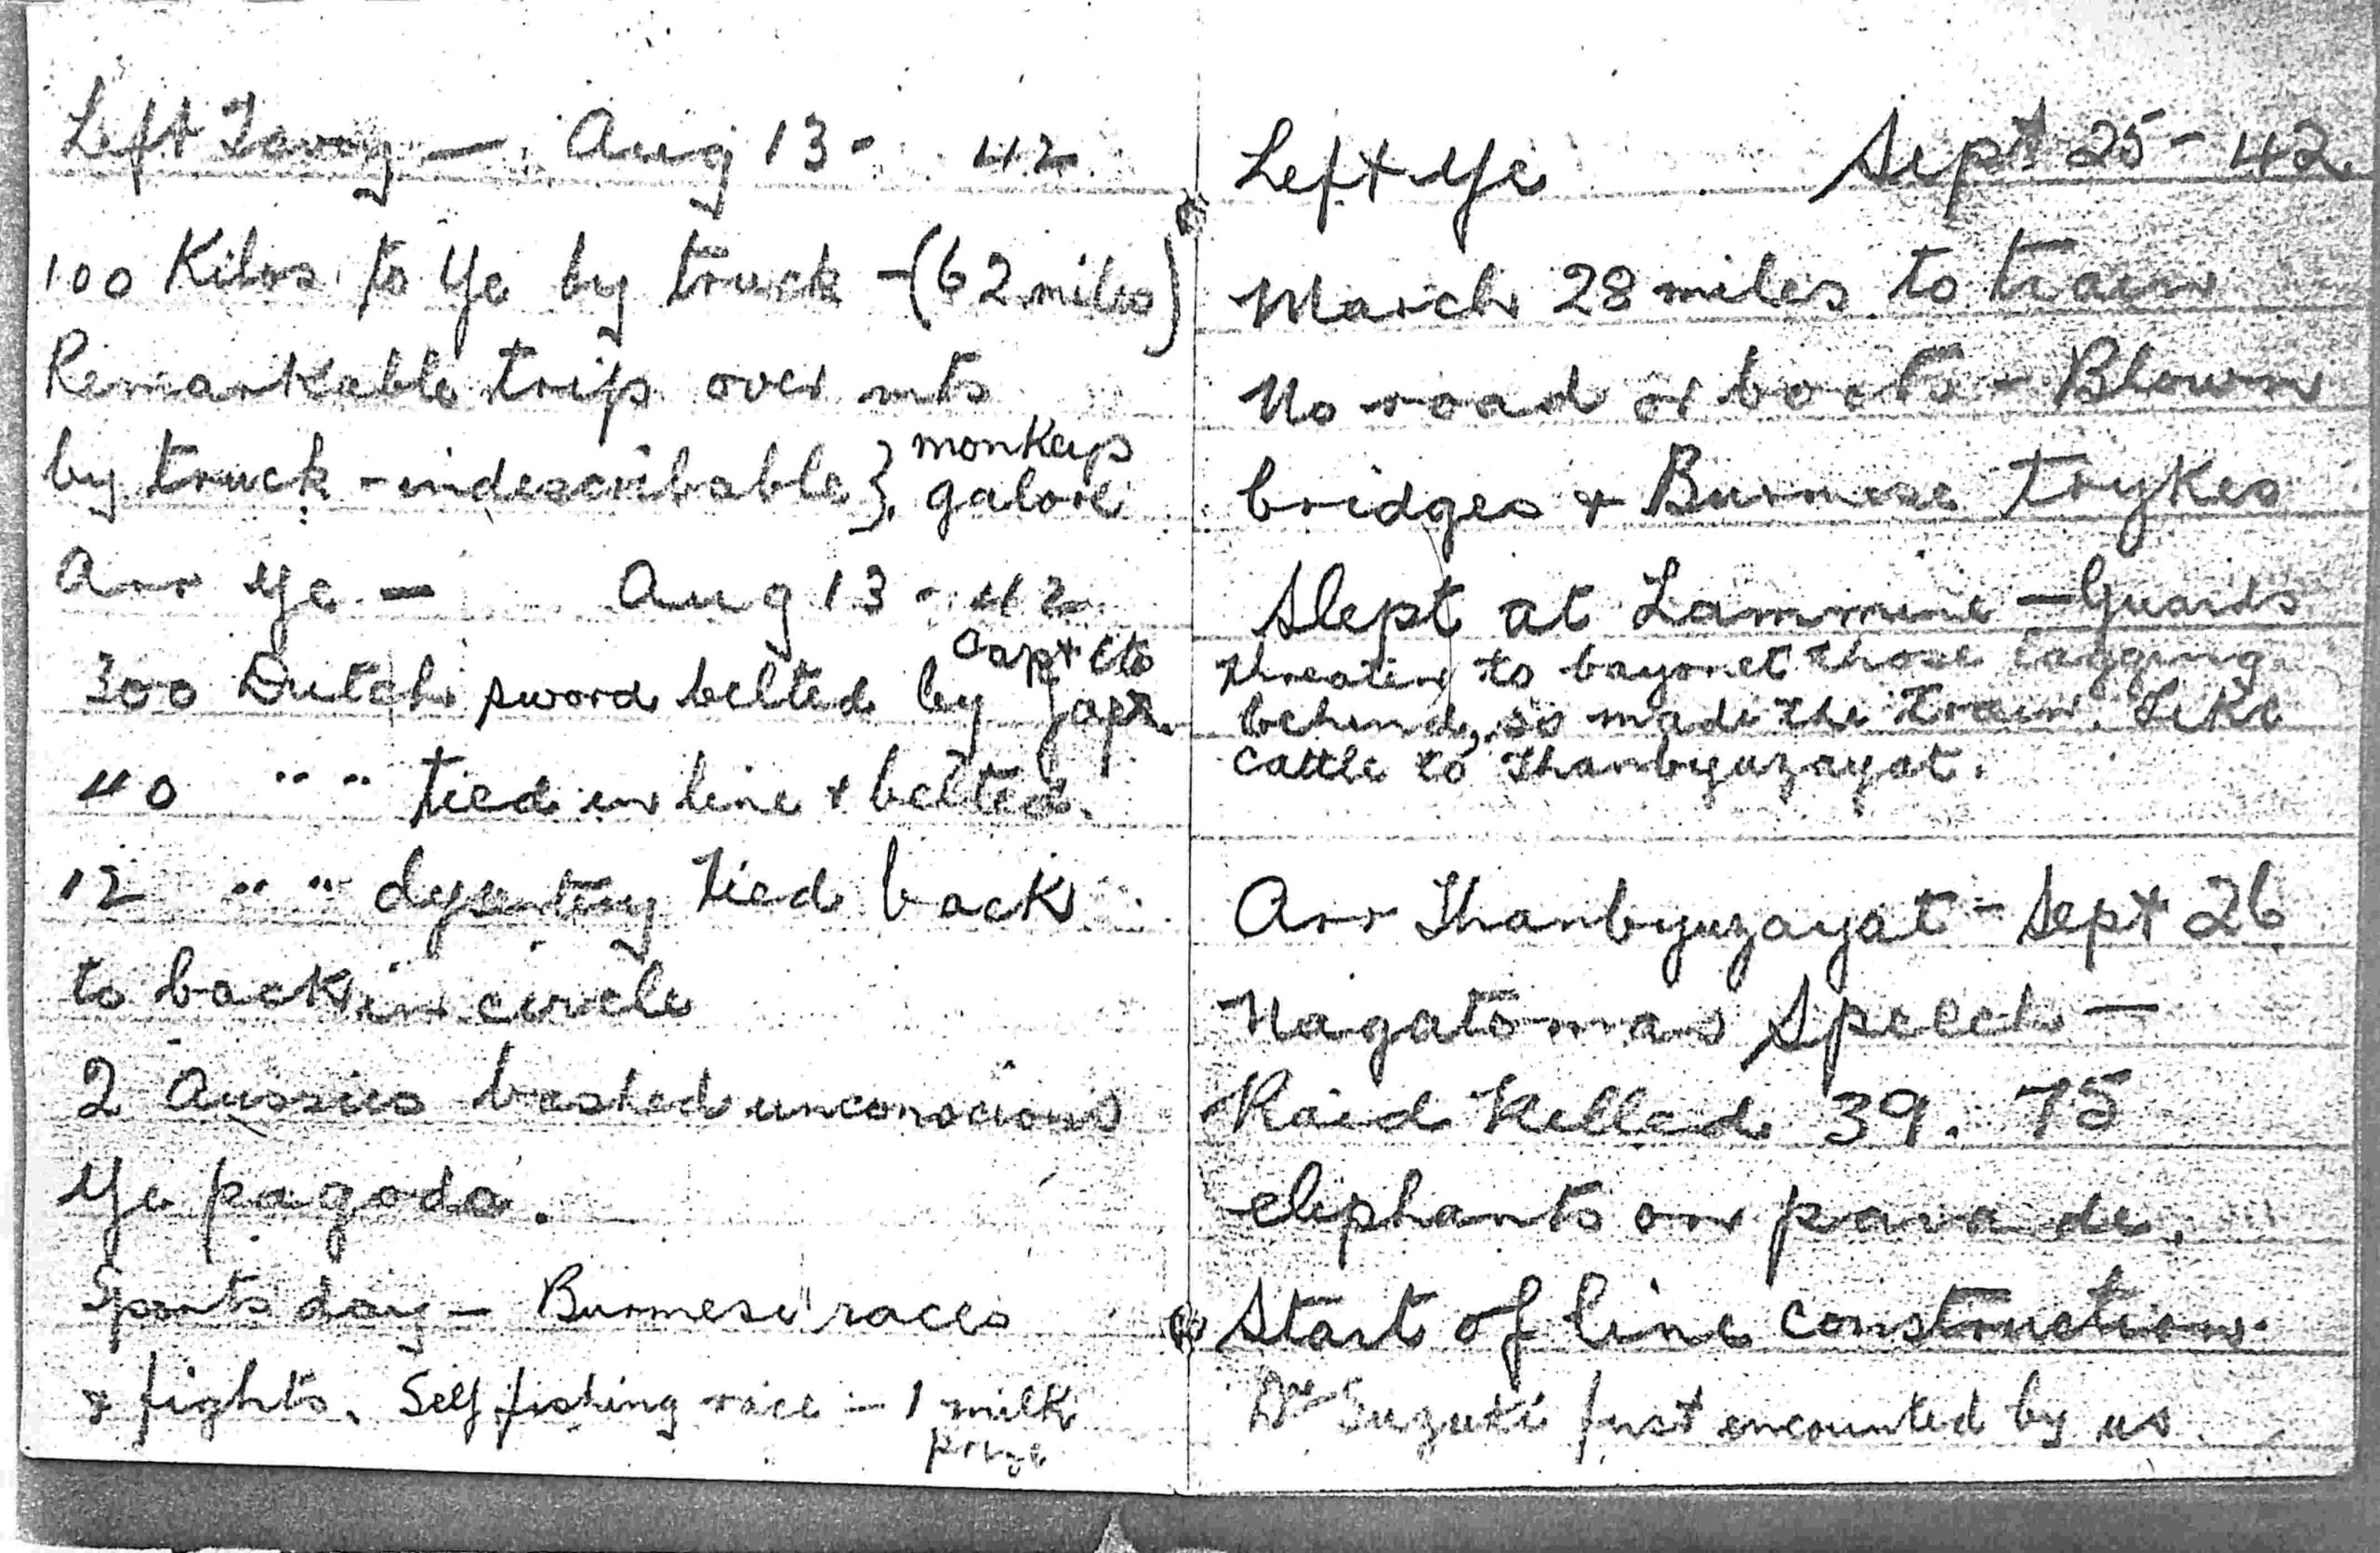 Left Tavoy — Aug 13 - 42
100 Kilos to Ye by truck - (62 miles)
Remarkable trip over mts
by truck - indescribable } monkeys
galore
Arr Ye — Aug 13 - 42
Capt Ito
300 Dutch sword belted by Japs
40 " " tied in line & belted.
12 " " dysentery tied back
to back in circle
2 Aussies bashed unconscious
Ye pagoda.
Sports day — Burmese races
& fights. Self fishing race - 1 milk
prize
Left Ye Sept 25 - 42
March 28 miles to train
No road or boots - Blown
bridges & Burmese trykes
Slept at Lammine — Guards
threaten to bayonet those lagging
behind, so made the train. Like
cattle to Thanbyuzayat.
Arr Thanbyuzayat - Sept 26
Nagatoman Speech —
Raid Killed 39. 75
elephants on parade.
Start of line construction.
Dr Suzuki first encounted by us